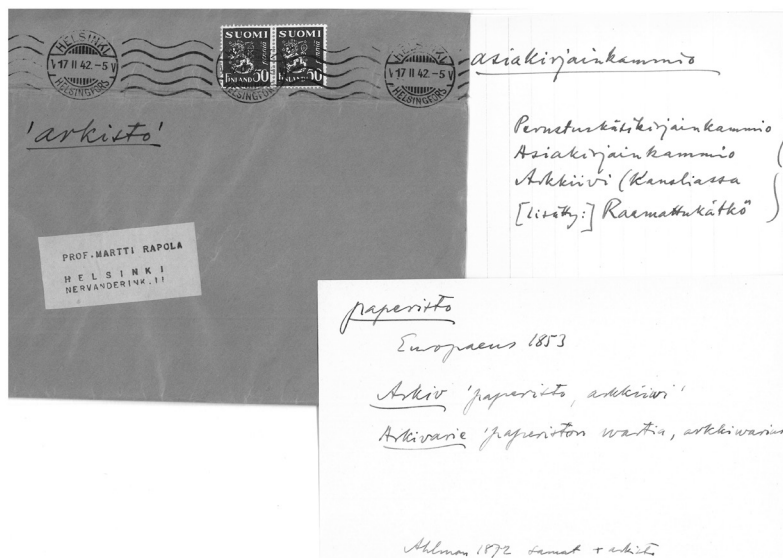 HELSINKI
17 II 42.-5
HELSINGFORS
SUOMI
FINLAND
50
SUOMI
50
HELSINKI
17 II 42.-5
HELSINGFORS
'arkisto'
PROF. MARTTI RAPOLA
HELSINKI
NERVANDERINK. 11
asiakirjainkammio
Perustuskätkikirjainkammio
Asiakirjainkammio
Arkkiivi (Kansliassa
[lisätty:] Raamattukätkö
paperisto
Europaeus 1853
Arkiv 'paperisto, arkkiiwi'
Arkivarie 'paperiston wartia, arkkiwarius
Ahlman 1872 samat + arkisto